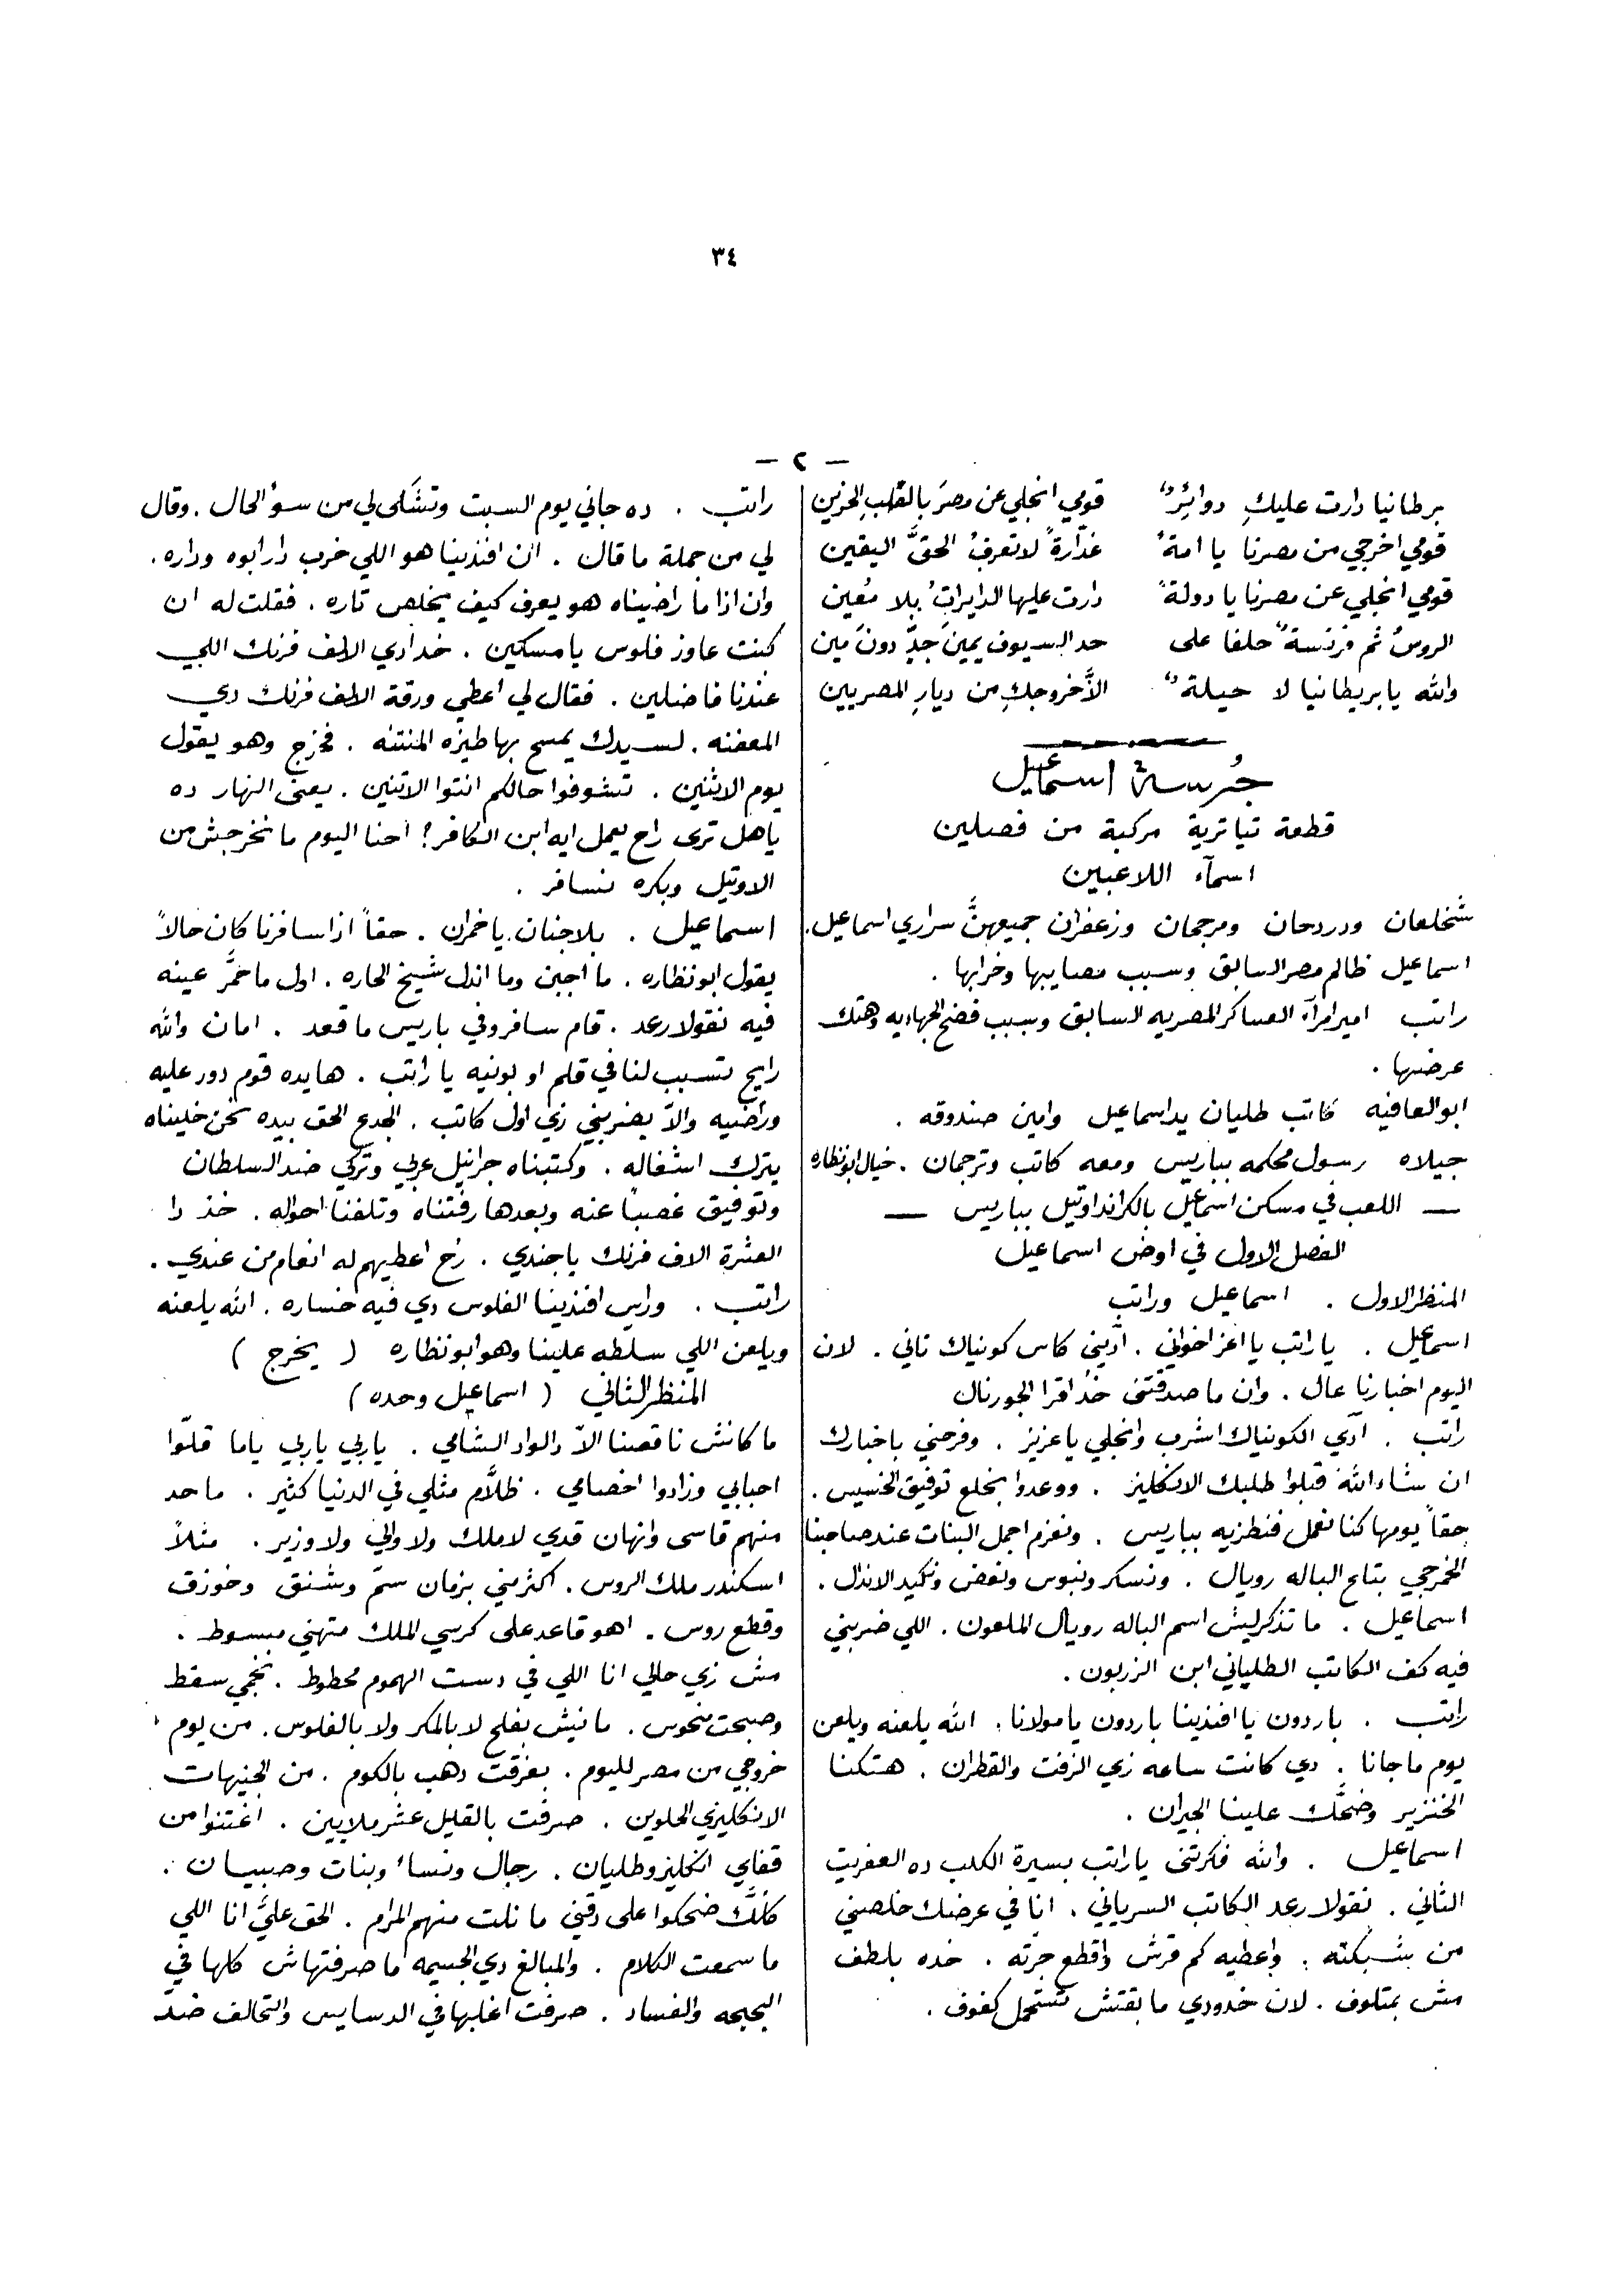 ٣٤
— ٢ —
برطانيا دارت عليكِ دوائرٌ قومي انجلي عن مصرَ بالقلبِ الحزين
قومي اخرجي من مصرنا يا امةً غدّارةً لا تعرفُ الحقَّ اليقين
قومي انجلي عن مصرنا يا دولةً دارت عليها الدايراتُ بلا مُعين
الروسُ ثم فرنسةٌ حلفا على حد السيوف يمينَ جدٍّ دونَ مين
والله يا بريطانيا لا حيلةٌ الاَّ خروجكِ من ديارِ المصريين
جُرسة اسماعيل
قطعة تياترية مركبة من فصلين
اسمآء اللاعبين
شخلعان ودردحان ومرجمان وزعفران جميعهنَّ سراري اسماعيل.
اسماعيل ظالم مصر السابق وسبب مصايبها وخرابها .
راتب امير امرآء العساكر المصريه السابق وسبب فضح الجهاديه وهتك
عرضها .
ابو العافيه كاتب طليان يد اسماعيل وامين صندوقه .
جيلاه رسول محكمه بباريس ومعه كاتب وترجمان . خيال ابو نظاره
— اللعب في مسكن اسماعيل بالكراند اوتيل بباريس —
الفصل الاول في اوض اسماعيل
المنظر الاول . اسماعيل وراتب
اسماعيل . يا راتب يا اعز اخواني . ادّيني كاس كونياك تاني . لان
اليوم اخبارنا عال . وان ما صدقتنى خُد اقرا الجورنال
راتب . آدي الكونياك اشرب وانجلي يا عزيز . وفرحني باخبارك
ان شاء الله قبلوا طلبك الانكليز . ووعدوا بخلع توفيق الخسيس .
حقاً يومها كنا نعمل فنطزيه بباريس . ونعزم اجمل البنات عند صاحبنا
الخمرجي بتاع الباله رويال . ونسكر ونبوس ونعض ونكيد الاندال .
اسماعيل . ما تذكرليش اسم الباله رويال الملعون . اللي ضربني
فيه كف الكاتب الطلياني ابن الزربون .
راتب . باردون يا افندينا باردون يا مولانا . الله يلعنه ويلعن
يوم ما جانا . دي كانت ساعه زي الزفت والقطران . هتكنا
الخنزير وضحَّك علينا الجيران .
اسماعيل . والله فكرتنى يا راتب بسيرة الكلب ده العفريت
الثاني . نقولا رعد الكاتب السرياني . انا في عرضك خلصني
من شبكته . واعطيه كم قرش واقطع جرّته . خده بلطف
مش بمتلوف . لان خدودي ما بقتش تستحمل كفوف .
راتب . ده جاني يوم السبت وتشكى لي من سوء الحال . وقال
لي من جملة ما قال . ان افندينا هو اللي خرب دار ابوه وداره .
وان اذا ما راضيناه هو يعرف كيف يخلص تاره . فقلت له ان
كنت عاوز فلوس يا مسكين . خد ادي الالف فرنك اللي
عندنا فاضلين . فقال لي اعطي ورقة الالف فرنك دي
المعفنه . لسيدك يمسح بها طيزه المنتنه . فخرج وهو يقول
يوم الاثنين . تشوفوا حالكم انتوا الاتنين . يعنى النهار ده
ياهل ترى راح يعمل ايه ابن الكافر ! احنا اليوم ما نخرجش من
الاوتيل وبكره نسافر .
اسماعيل . بلا جنان يا خمران . حقاً اذا سافرنا كان حالاً
يقول ابو نظاره . ما اجبن وما اندل شيخ الحاره . اول ما حمَّر عينه
فيه نقولا رعد . قام سافر وفي باريس ما قعد . امان والله
رايح تسبب لنا في قلم او بونيه يا راتب . هايده قوم دور عليه
وراضيه والاّ يضربني زي اول كاتب . الجدع الحق بيده نحن خليناه
يترك اشغاله . وكتبناه جرانيل عربي وتركي ضد السلطان
وتوفيق غصباً عنه وبعدها رفتناه وتلفنا احواله . خذ دا
العشرة الاف فرنك يا جندي . رُح اعطيهم له انعام من عندي .
راتب . وراس افندينا الفلوس دي فيه خساره . الله يلعنه
ويلعن اللي سلطه علينا وهو ابو نظاره ( يخرج )
المنظر الثاني ( اسماعيل وحده )
ما كانش ناقصنا الاّ دالواد الشامي . يا ربي يا ربي ياما قلّوا
احبابي وزادوا اخصامي . ظلاَّم مثلي في الدنيا كثير . ما حد
منهم قاسى وانهان قدي لا ملك ولا والي ولا وزير . مثلاً
اسكندر ملك الروس . اكثر مني بزمان سمّ وشنق وخوزق
وقطع روس . اهو قاعد على كرسي الملك متهني مبسوط .
مش زي حالي انا اللي في دست الهموم محطوط . نجمي سقط
وصبحت منحوس . مانيش بفلح لا بالمكر ولا بالفلوس . من يوم
خروجي من مصر لليوم . بعزقت دهب بالكوم . من الجنيهات
الانكليزي الحلوين . صرفت بالقليل عشر ملايين . اغتنوا من
قفاي انكليز وطليان . رجال ونساء وبنات وصبيان .
كلَّك ضحكوا على دقني ما نلت منهم المرام . الحق عليَّ انا اللي
ما سمعت الكلام . والمبالغ دي الجسيمه ما صرفتهاش كلها في
البحبحه والفساد . صرفت اغلبها في الدسايس والتحالف ضد